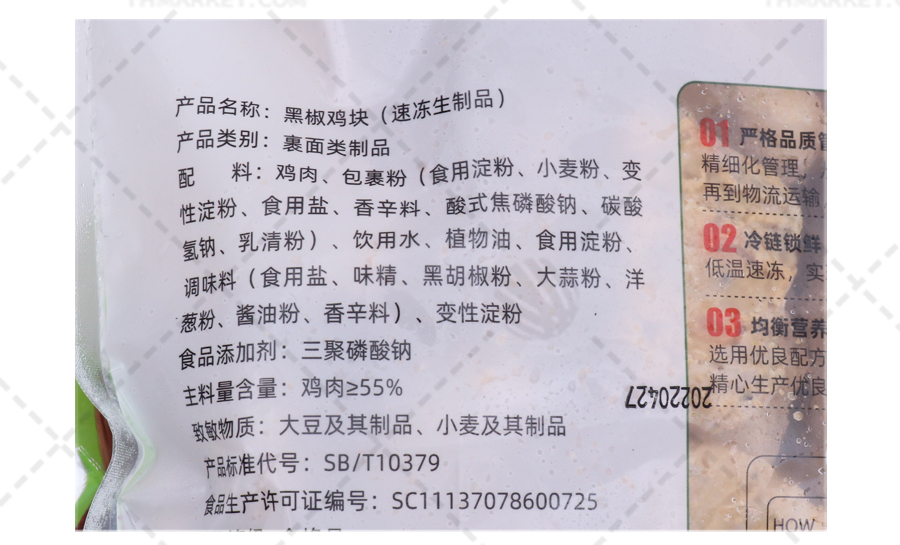 产品名称：黑椒鸡块（速冻生制品）
产品类别：裹面类制品
配 料：鸡肉、包裹粉（食用淀粉、小麦粉、变
性淀粉、食用盐、香辛料、酸式焦磷酸钠、碳酸
氢钠、乳清粉）、饮用水、植物油、食用淀粉、
调味料（食用盐、味精、黑胡椒粉、大蒜粉、洋
葱粉、酱油粉、香辛料）、变性淀粉
食品添加剂：三聚磷酸钠
主料量含量：鸡肉≥55%
致敏物质：大豆及其制品、小麦及其制品
产品标准代号：SB/T10379
食品生产许可证编号：SC11137078600725
20220427
01 严格品质管
精细化管理，
再到物流运输
02 冷链锁鲜
低温速冻，实
03 均衡营养
选用优良配方
精心生产优良
HOW